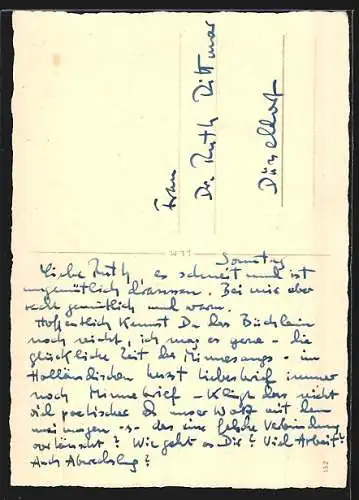 Frau
Dr. Ruth Dittmar
Düsseldorf
Sonntag
Liebe Ruth, es schneit und ist
ungemütlich draussen. Bei mir aber
recht gemütlich und warm.
Hoffentlich kennst Du das Büchlein
noch nicht, ich mag es gerne - die
glückliche Zeit des Minnesangs - im
Holländischen heisst Liebesbrief immer
noch Minnebrief - Klingt das nicht
viel poetischer & unser Wort mit dem
 - das eine falsche Verbindung
 ? Wie geht es Dir? Viel Arbeit?
Auch Abwechslung?